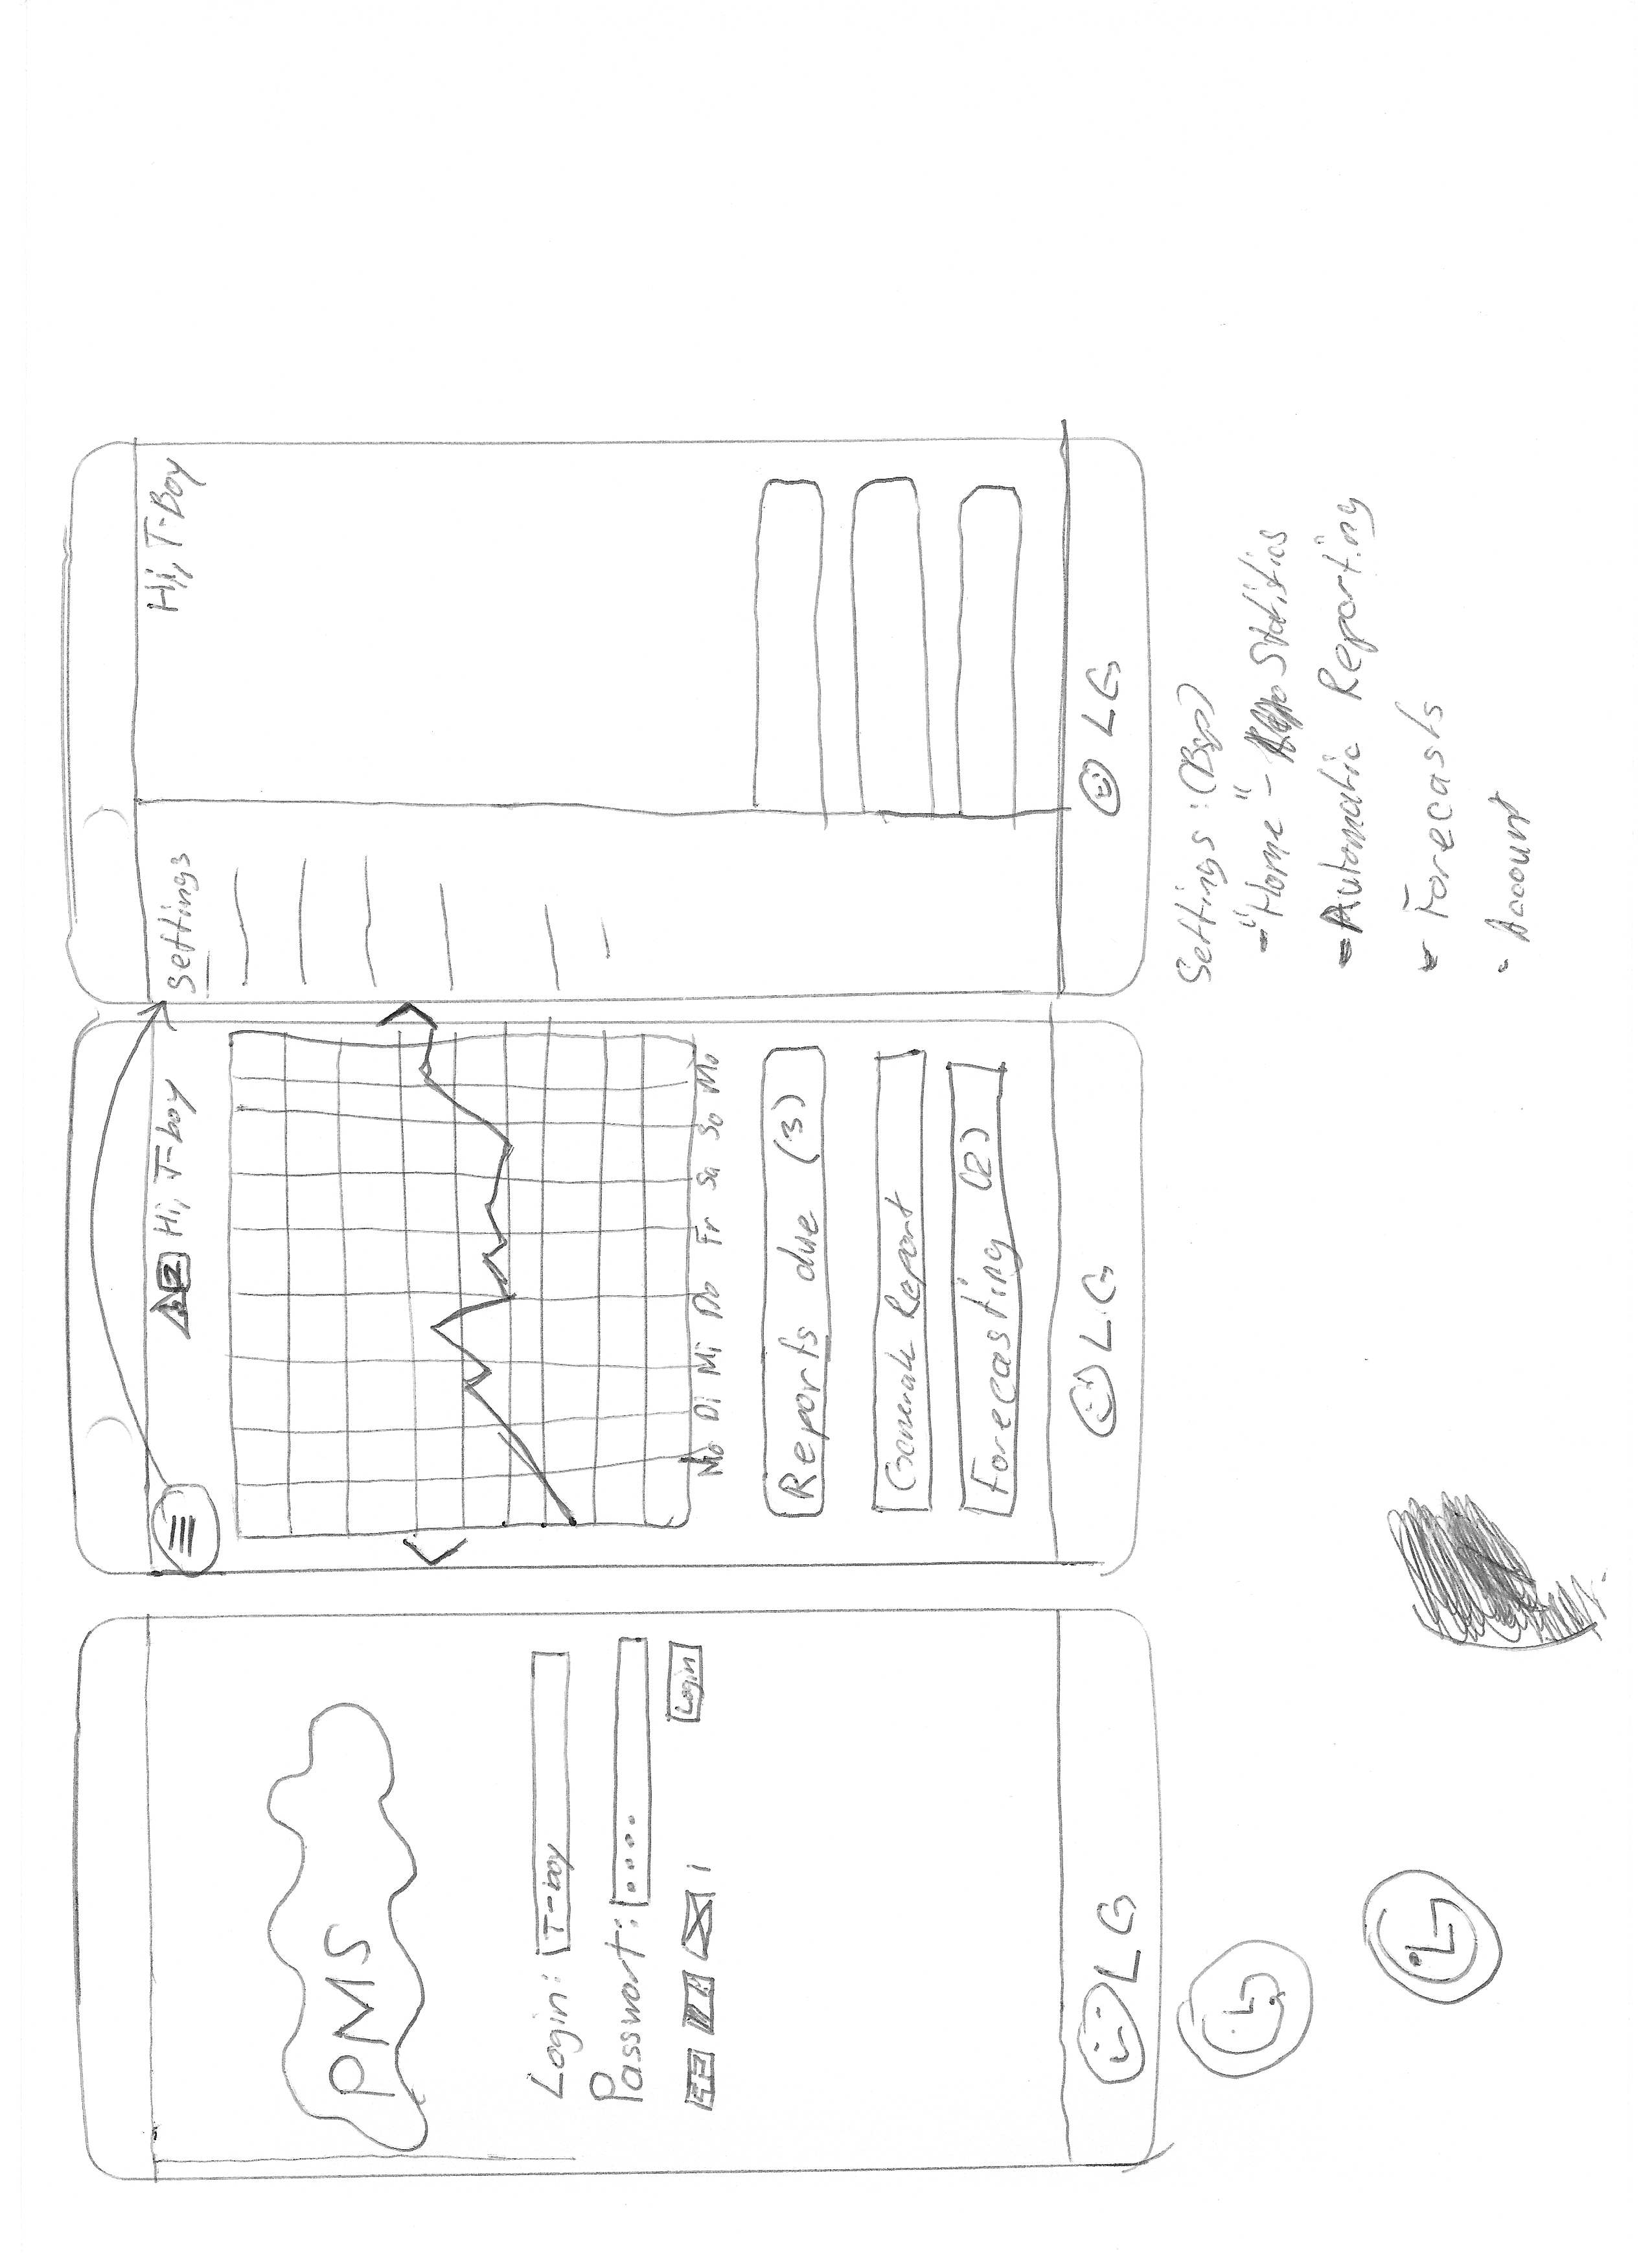 PMS
Login: T-boy
Passwort: ....
Login
LG
Hi, T-boy
Mo Di Mi Do Fr Sa So Mo
Reports due (3)
Generate Report
Forecasting (2)
LG
Settings
Hi, T-Boy
LG
Settings: (Bsp)
- "Home"- Statistics
- Automatic Reporting
- Forecasts
- Account